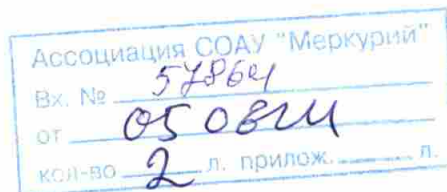 Ассоциация СОАУ "Меркурий"
Вх. № 57864
от 05 08
кол-во 2 л. прилож. л.